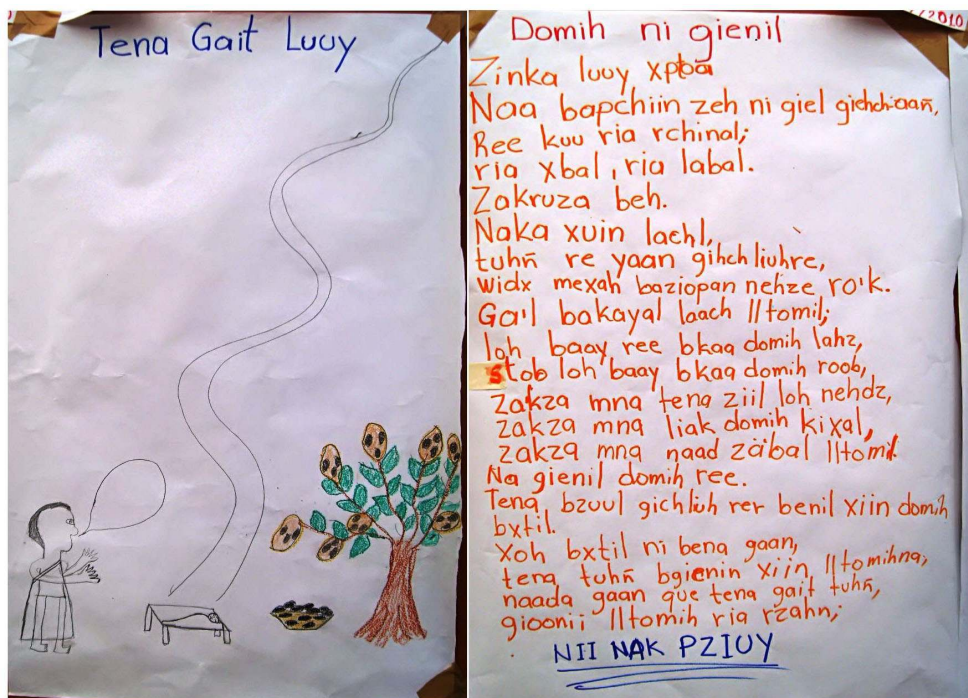 Tena Gait Luuy
/2010
Domih ni gienil
Zinka luuy xpba
Naa bapchiin zeh ni giel giehchiaañ,
Ree kuu ria rchinal;
ria xbal, ria labal.
Zakruza beh.
Naka xuin lachl,
tuhñ re yaan gihch liuhre,
widx mexah baziopan nehze ro'k.
Ga'l bakayal laach lltomil;
loh baay ree bkaa domih lahz,
stob loh baay bkaa domih roob,
zakza mna tena ziil loh nehdz,
zakza mna liak domih kixal,
zakza mna naad zäbal lltomil.
Na gienil domih ree.
Tena bzuul gichluh rer benil xiin domih
bxtil.
Xoh bxtil ni bena gaan,
tena tuhñ bgienin xiin lltomihna;
naada gaan que tena gait tuhñ,
gioonii lltomih ria rzahn;
NII NAK PZIUY